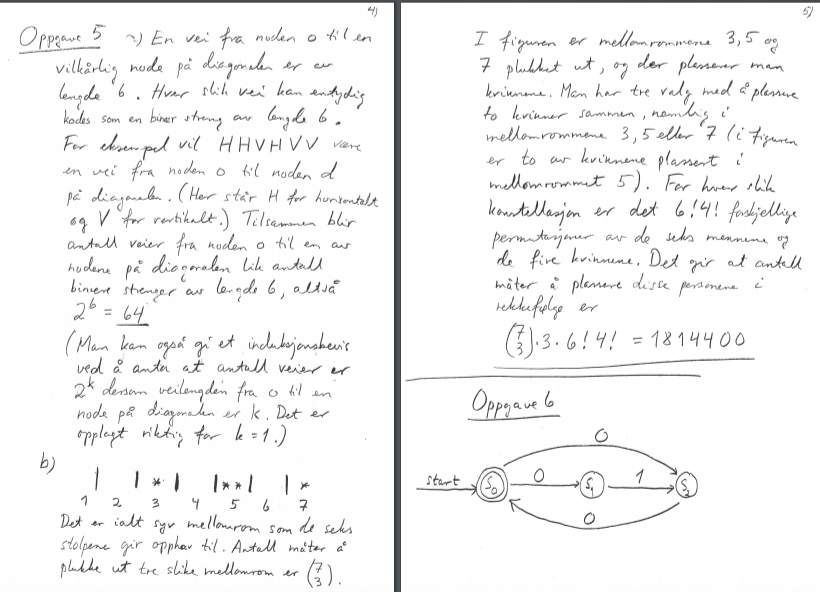 4)
Oppgave 5 a) En vei fra noden o til en
vilkårlig node på diagonalen er av
lengde 6. Hver slik vei kan entydig
kodes som en binær streng av lengde 6.
For eksempel vil HHVHVV være
en vei fra noden o til noden d
på diagonalen. (Her står H for horisontalt
og V for vertikalt.) Tilsammen blir
antall veier fra noden o til en av
nodene på diagonalen lik antall
binære strenger av lengde 6, altså
2^6 = 64
(Man kan også gi et induksjonsbevis
ved å anta at antall veier er
2^k dersom veilengden fra o til en
node på diagonalen er k. Det er
opplagt riktig for k=1.)
b)
| | * | | * * | | *
1 2 3 4 5 6 7
Det er ialt syv mellomrom som de seks
stolpene gir opphav til. Antall måter å
plukke ut tre slike mellomrom er (7 3).
5)
I figuren er mellomrommene 3,5 og
7 plukket ut, og der plasserer man
kvinnene. Man har tre valg med å plassere
to kvinner sammen, nemlig i
mellomrommene 3, 5 eller 7 (i figuren
er to av kvinnene plassert i
mellomrommet 5). For hver slik
konstellasjon er det 6!4! forskjellige
permutasjoner av de seks mennene og
de fire kvinnene. Det gir at antall
måter å plassere disse personene i
rekkefølge er
(7 3)·3·6!4! = 1814400
Oppgave 6
0
start S0 0 S1 1 S2
0